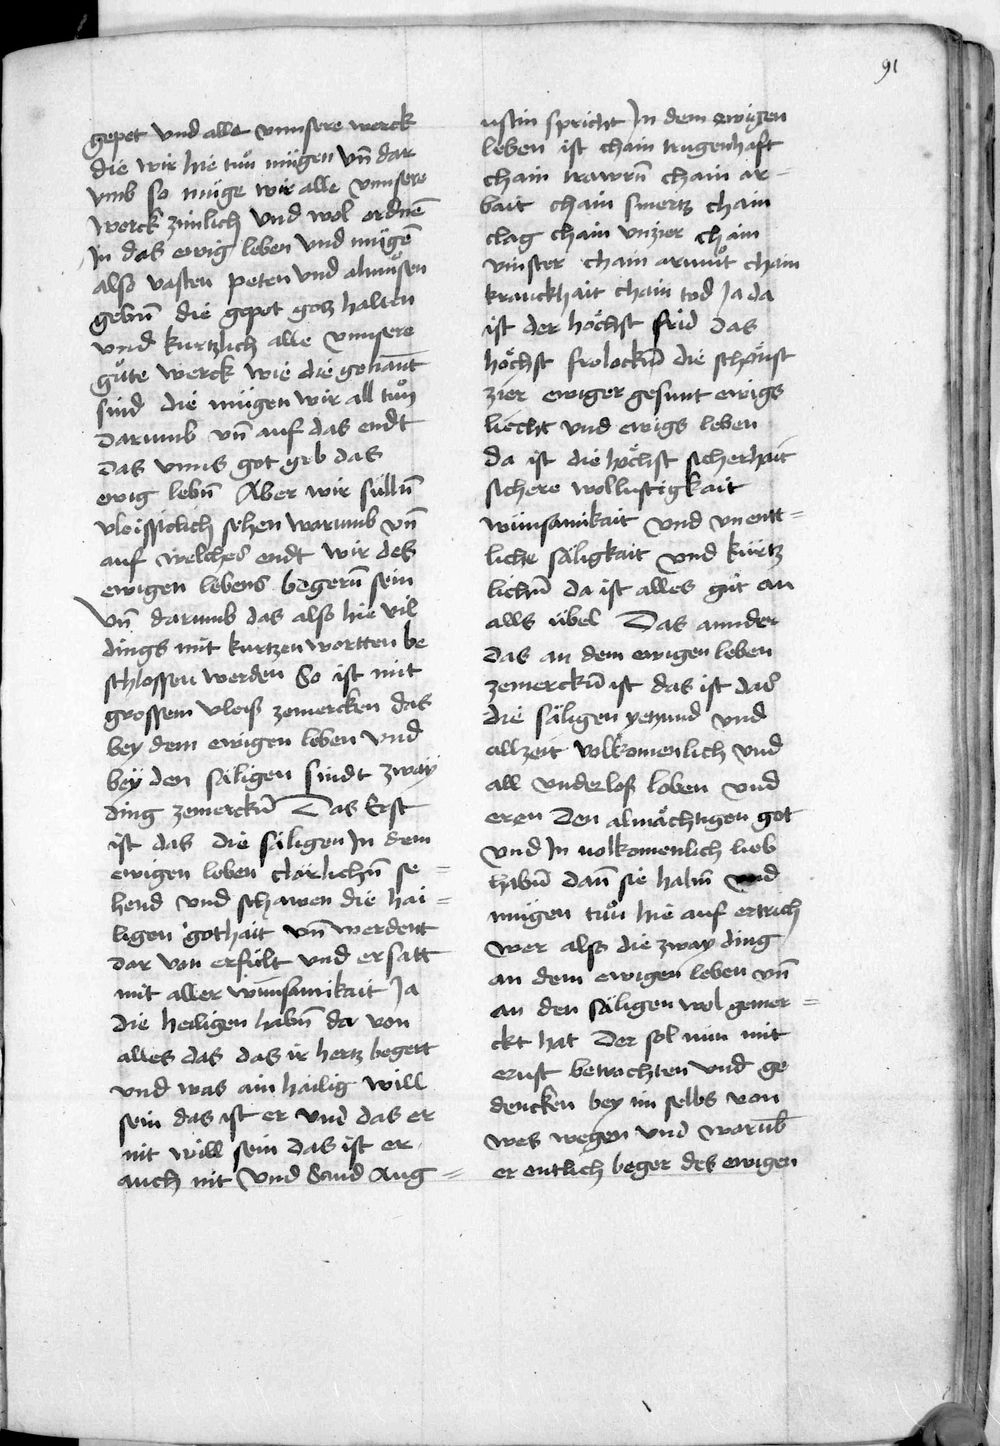 91
gepet vnd alle vnnsere werck
die wir hie tuͦn mügen vn̄ dar
vmb so müge wir alle vnnsere
werck zimlich vnd wol ordnē
In das ewig leben vnd mügē
also vasten peten vnd almuͦsen
gebn̄ die gepot gotz halten
vnd kurtzlich alle vnnsere
guͤte werck wie die genāt
sind die mügen wir all tuͦn
darumb vn̄ auf das endt
das vnns got geb das
ewig lebn̄ Aber wir sülln̄
vleissiclich sehen warumb vn̄
auf welches endt wir des
ewigen lebens begern̄ sein
Vn̄ darumb das also hie vil
dings mit kurtzen wortten be
schlossen werden So ist mit
grossem vleiß zemercken das
bey dem ewigen leben vnd
bey den säligen sindt zway
ding zemerckn̄ Das Erst
ist das die säligen In dem
ewigen leben clärlichn̄ se=
hend vnd schawen die hai=
ligen gothait vn̄ werdent
dar von erfült vnd ersatt
mit aller wunsamikait Ja
die heiligen habn̄ da von
alles das das ir hertz begert
vnd was ain hailig will
sein das ist er vnd das er
nit will sein das ist er
auch nit Vnd Sand Aug=
ustin spricht In dem ewigen
leben ist chain trugenhaft
chain trawrn̄ chain ar-
bait chain smertz chain
clag chain vnzier chain
vinster chain armuͦt chain
kranckhait chain tod Ja da
ist der höchst frid das
höchst frolockn̄ die schönst
zier ewiger gesunt ewigs
liecht vnd ewigs leben
da ist die höchst sicherhait
sichere wollustigkait
wünsamikait vnd vnentt=
liche säligkait vnd kürtz
lichn̄ da ist alles guͦt an
alls übel Das annder
das an dem ewigen leben
zemerckn̄ ist das ist das
die säligen yetzund vnd
allzeit volkomenlich vnd
all vnderloß loben vnd
eren den almächtigen got
vnd In volkomenlich lieb
habn̄ dan̄ sie habn̄ vnd
mügen tuͦn hie auf ertrich
wer also die zway ding
an dem ewigen leben vn̄
an den säligen wol gemer=
ckt hat der sol nun mit
ernst betrachten vnd ge
dencken bey im selbs von
wes wegen vnd warūb
er entlich beger des ewigen